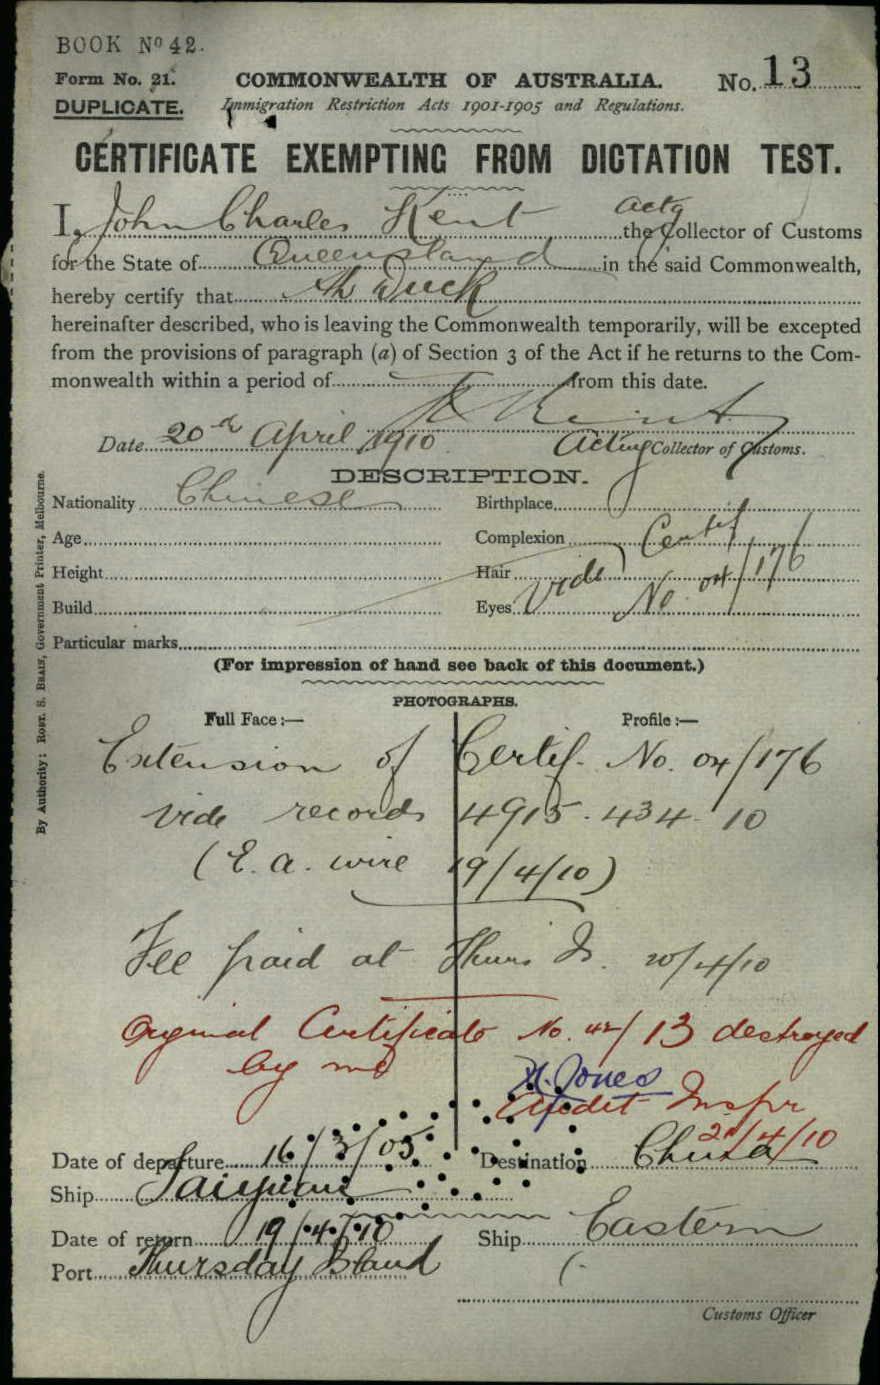 BOOK No 42.
Form No. 21. COMMONWEALTH OF AUSTRALIA. No. 13
DUPLICATE. Immigration Restriction Acts 1901-1905 and Regulations.
CERTIFICATE EXEMPTING FROM DICTATION TEST.
I, John Charles Kent actg the Collector of Customs
for the State of Queensland in the said Commonwealth,
hereby certify that Ah Duck
hereinafter described, who is leaving the Commonwealth temporarily, will be excepted
from the provisions of paragraph (a) of Section 3 of the Act if he returns to the Com-
monwealth within a period of from this date.
Kent
Date 20th April 1910 Acting Collector of Customs.
DESCRIPTION.
Nationality Chinese Birthplace
Age Complexion
Height Hair
Build Eyes
Vide Certif No. 04/176
Particular marks
(For impression of hand see back of this document.)
PHOTOGRAPHS.
Full Face :— Profile :—
Extension of Certif. No. 04/176
vide records 4915. 434. 10
(E. A. wire 19/4/10)
Fee paid at Thurs Is. 20/4/10
Original Certificate No. 42/13 destroyed
by me H. Jones
Inspr
4/10
Date of departure 16/3/05 Destination China
Ship Taiyuan
Date of return 19.4.10 Ship Eastern
Port Thursday Island
Customs Officer
By Authority: ROBT. S. BRAIN, Government Printer, Melbourne.